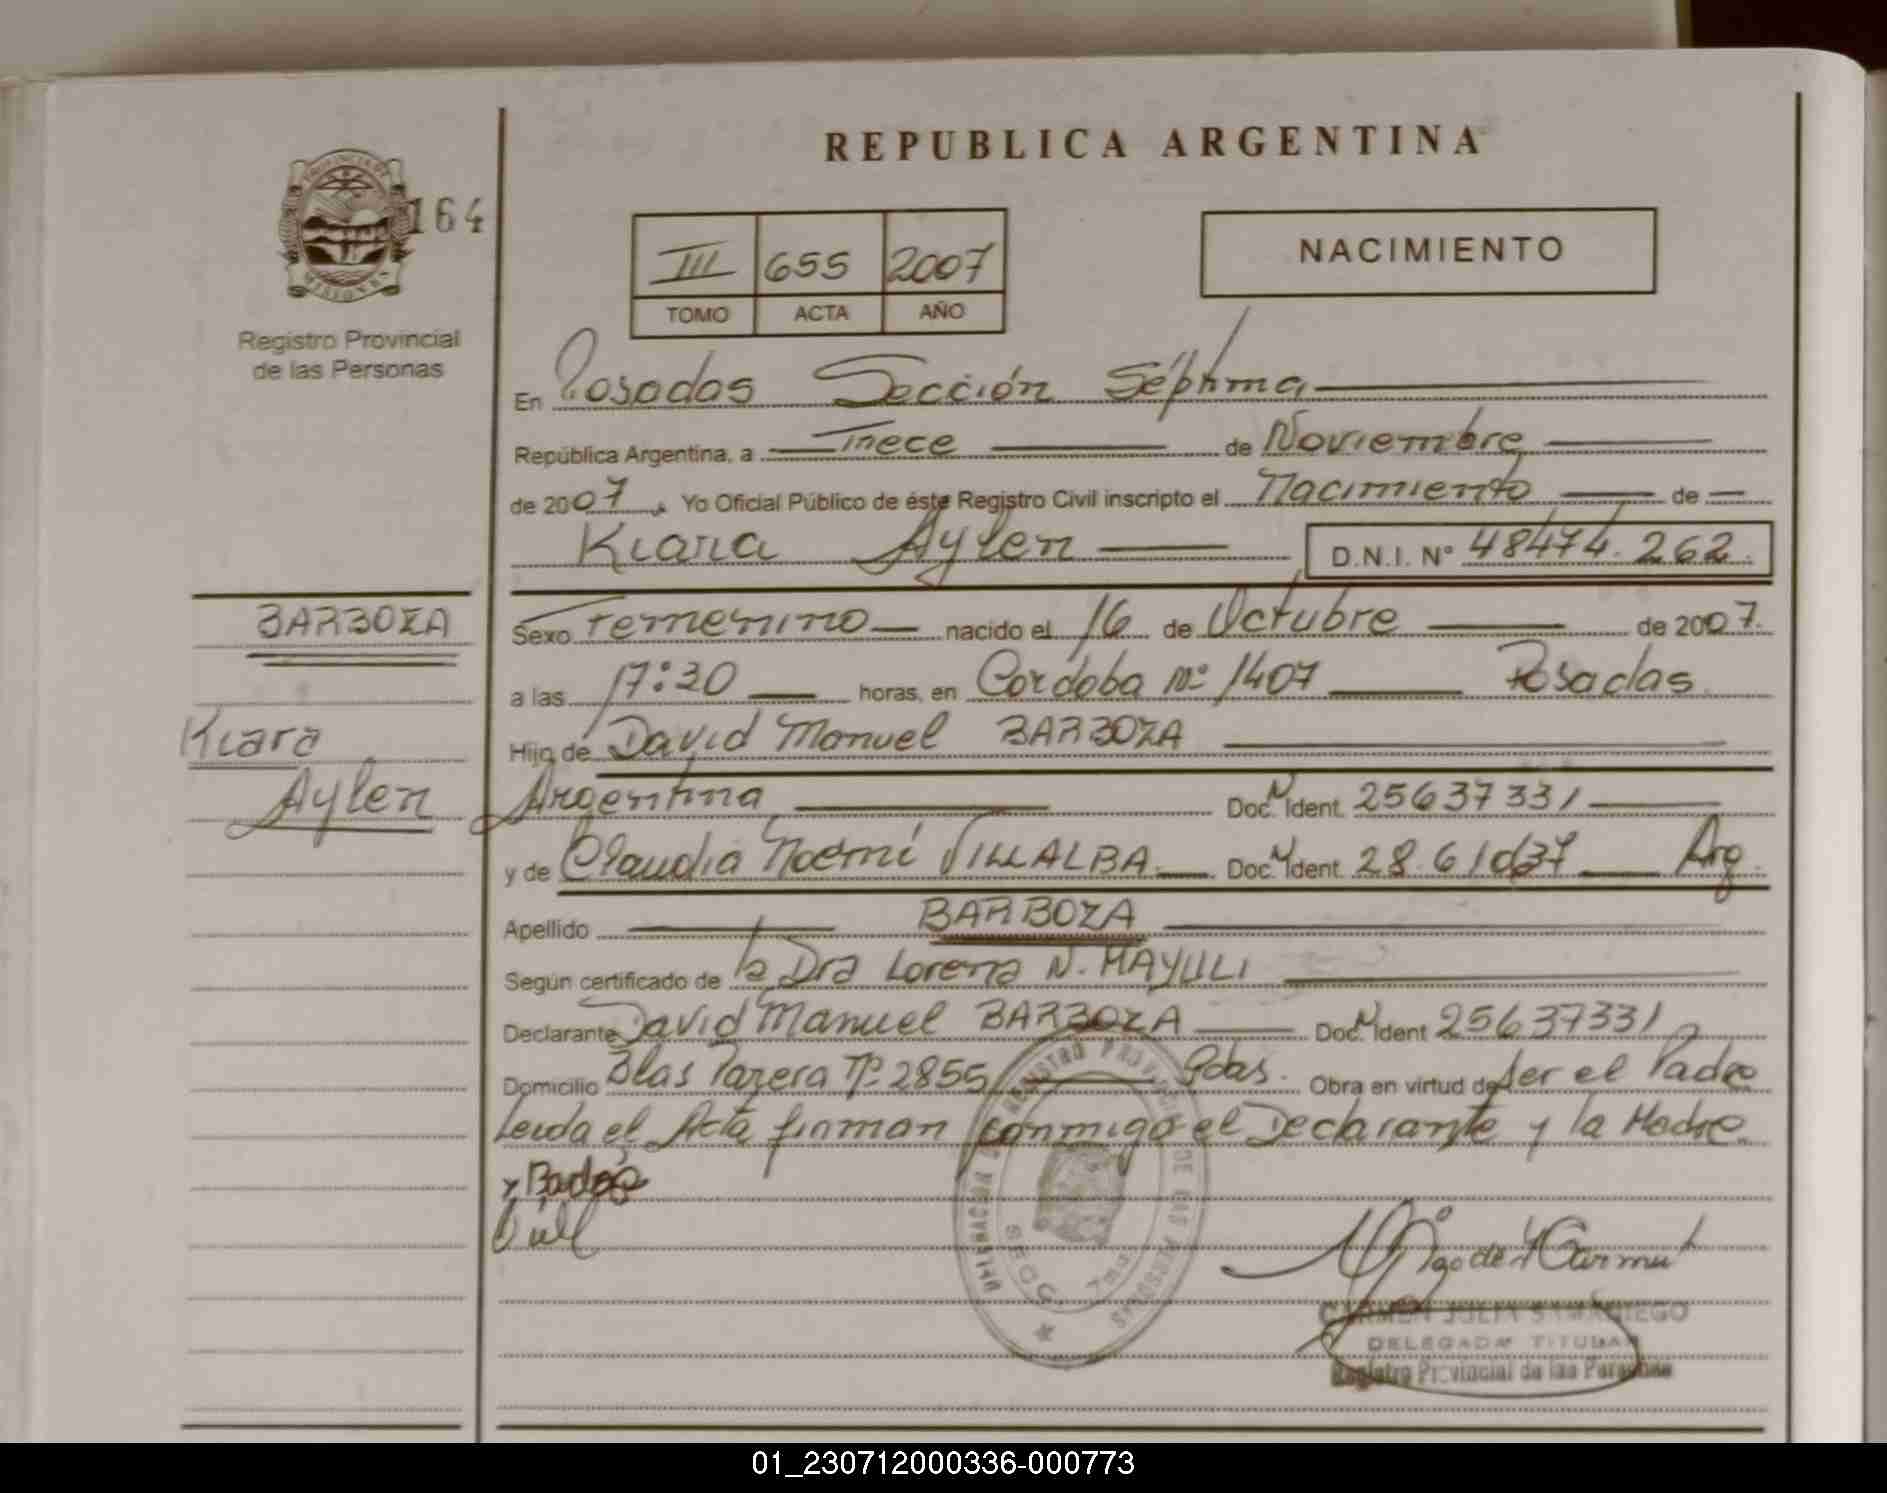 REPUBLICA ARGENTINA
PROVINCIA DE
MISIONES
164
Registro Provincial
de las Personas
III 655 2007
TOMO ACTA AÑO
NACIMIENTO
En Posadas Sección Séptima
República Argentina, a Trece de Noviembre
de 2007, Yo Oficial Público de éste Registro Civil inscripto el Nacimiento de
Kiara Aylen D.N.I. N° 48474.262.
BARBOZA
Sexo Femenino nacido el 16 de Octubre de 2007.
a las 17:30 horas, en Cordoba Nº 1407 Posadas
Kiara
Hijo de David Manuel BARBOZA
Aylen
Argentina Doc. Ident. 25637331
y de Claudia Noemí VILLALBA Doc. Ident. 28.61 Arg.
Apellido BARBOZA
Según certificado de la Dra Lorena N. MAYULI
Declarante David Manuel BARBOZA Doc. Ident 25637331
Domicilio Blas Parera Nº 2855 Pdas. Obra en virtud de ser el Padre
Leida el Acta firman conmigo el Declarante y la Madre
DELEGACION REGISTRO PROVINCIAL DE LAS PERSONAS
SECC. 7ma
CARMEN JULIA SAMANIEGO
DELEGADA TITULAR
Registro Provincial de las Personas
01_230712000336-000773